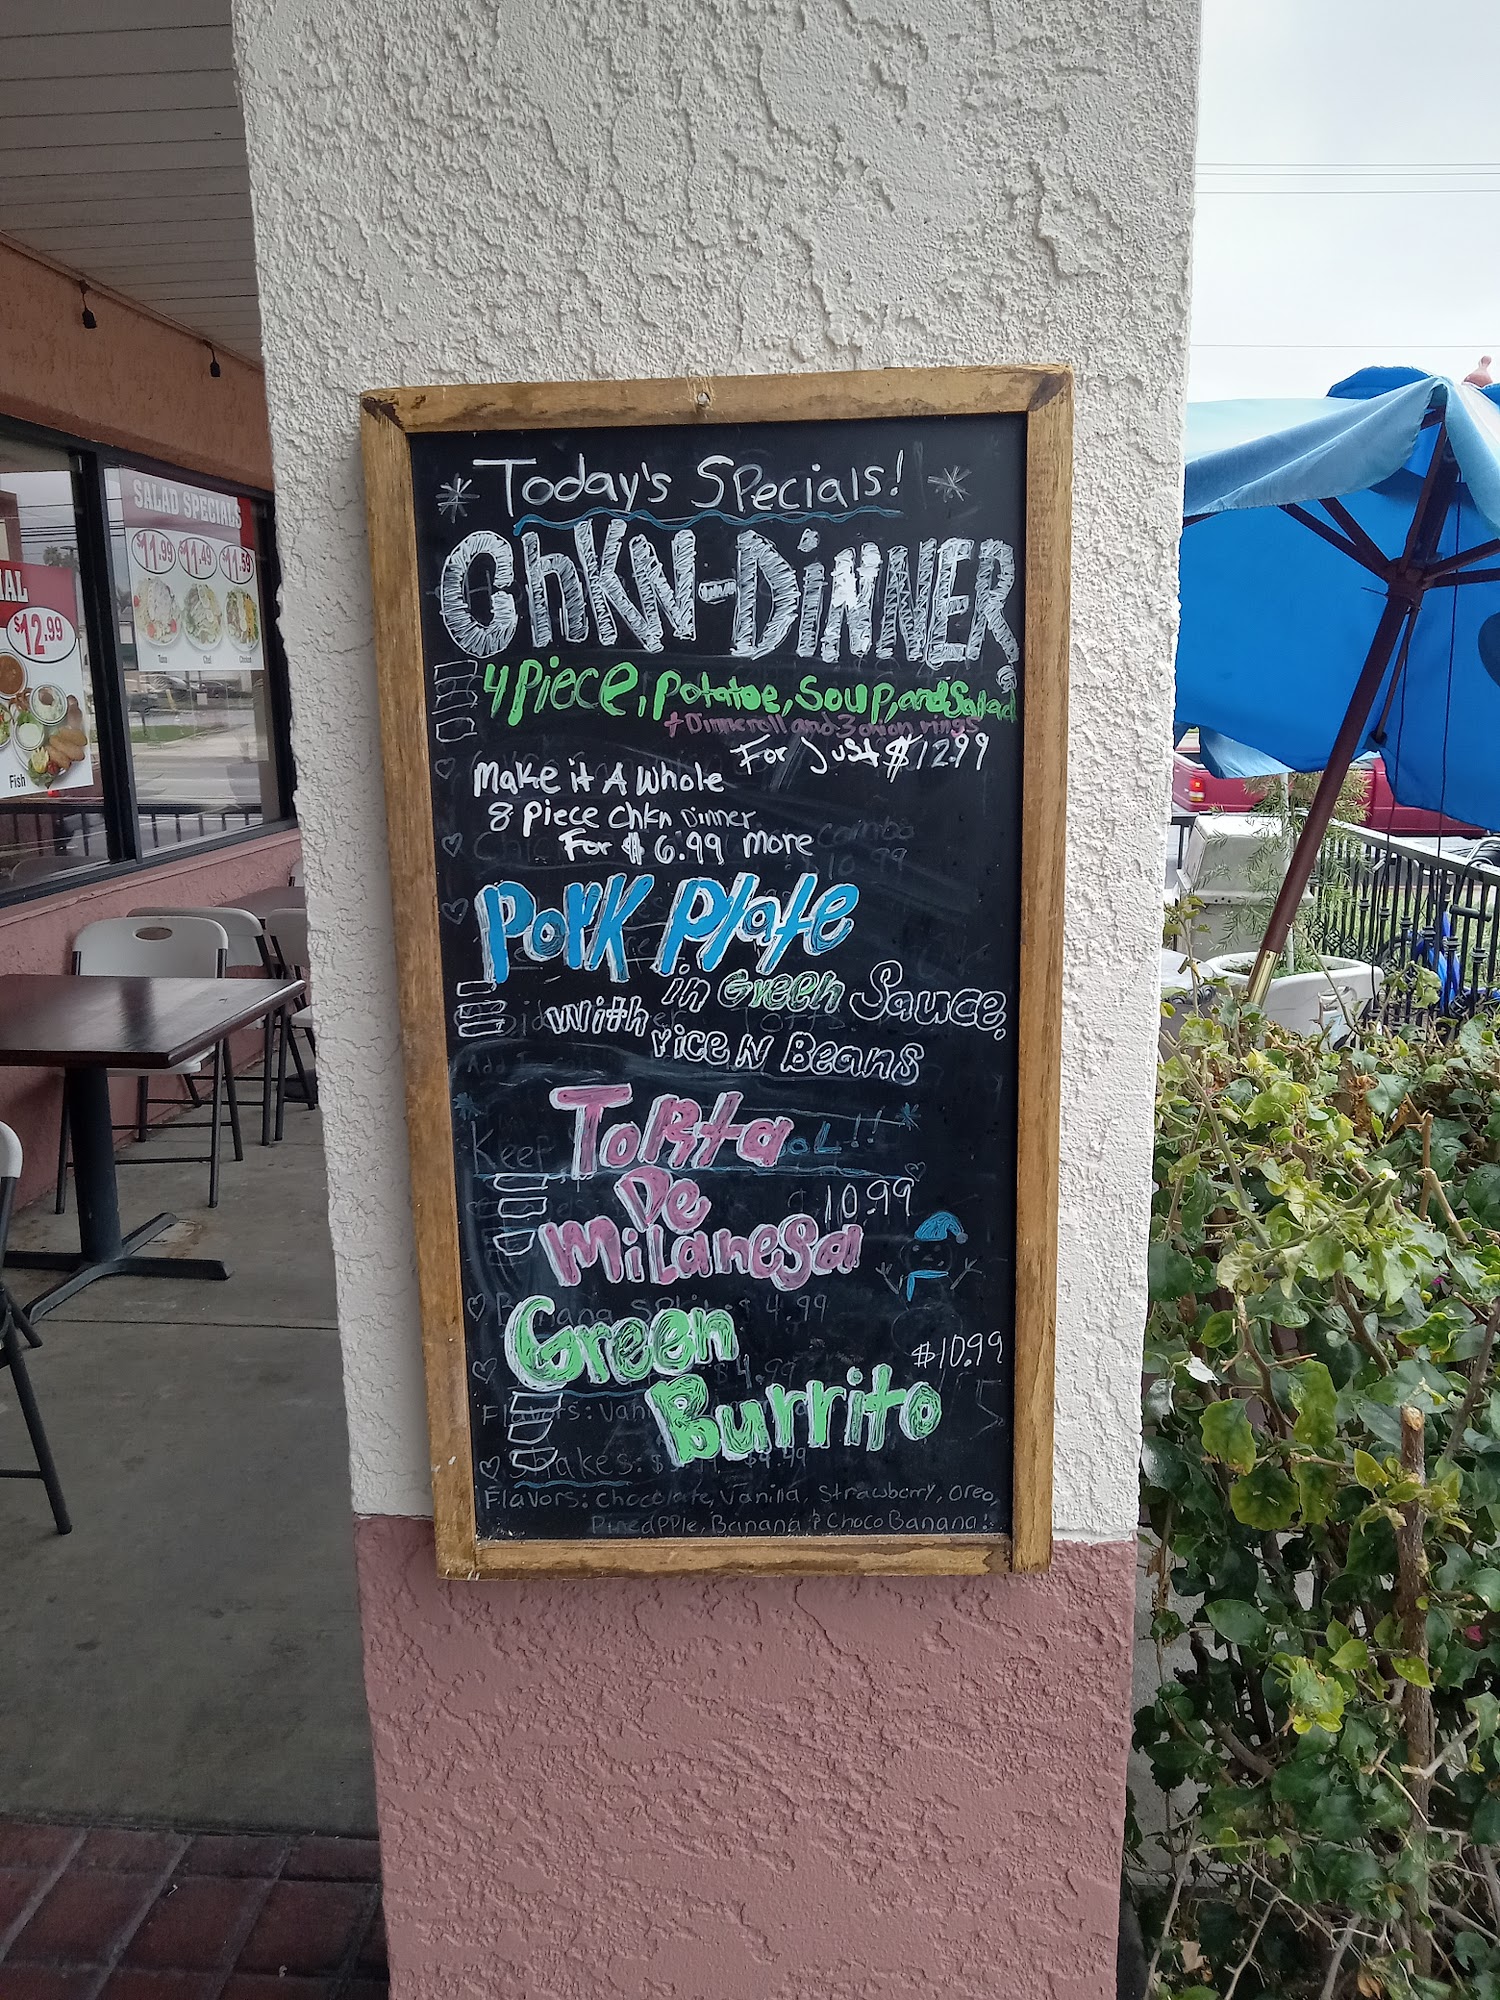 SALAD SPECIALS
$11.99 $11.49 $11.59
Tuna Chef Chicken
IAL
$12.99
Fish
Today's Specials!
ChKN-DiNNER
4 Piece, Potatoe, Soup, and Salad
+ Dinner roll and 3 onion rings
For Just $12.99
Make it A Whole
8 Piece Chkn Dinner
For $6.99 more
combo
10.99
Pork Plate
in Green Sauce,
With rice N Beans
Keep
OL!!
Torta
De
$10.99
Milanesa
Banana Split $4.99
Green
$10.99
$4.99
Burrito
Flavors: Vani
Shakes: $ $4.49
Flavors: Chocolate, Vanilla, Strawberry, Oreo,
PineaPPle, Banana & Choco Banana!